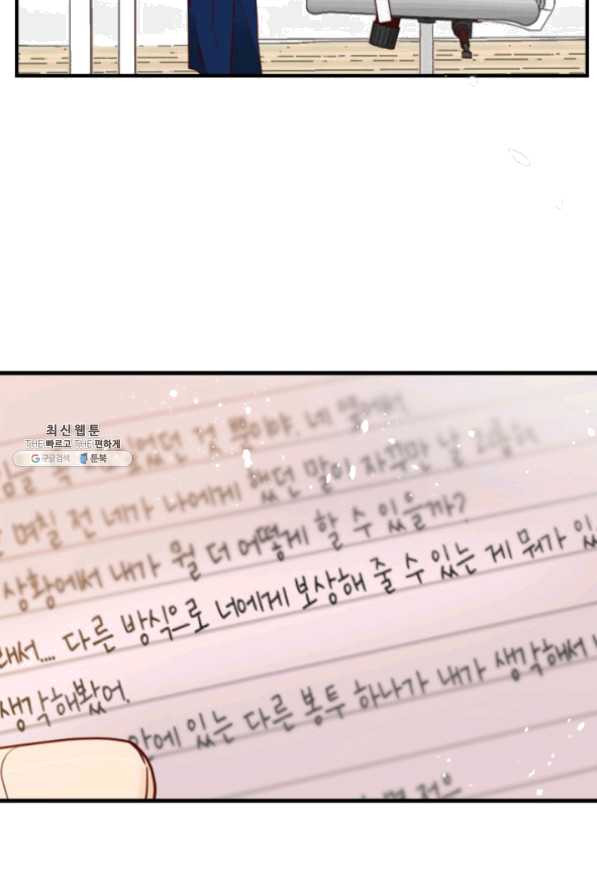 최신웹툰
THE 빠르고 THE 편하게
G 구글검색 툰북
었던 것 뿐이야. 네
며칠 전 네가 나에게 했던 말이 자꾸만
상황에서 내가 뭘 더 어떻게 할 수 있을까?
래서... 다른 방식으로 너에게 보상해 줄 수 있는 게 뭐가 있
생각해봤어.
안에 있는 다른 봉투 하나가 내가 생각해서